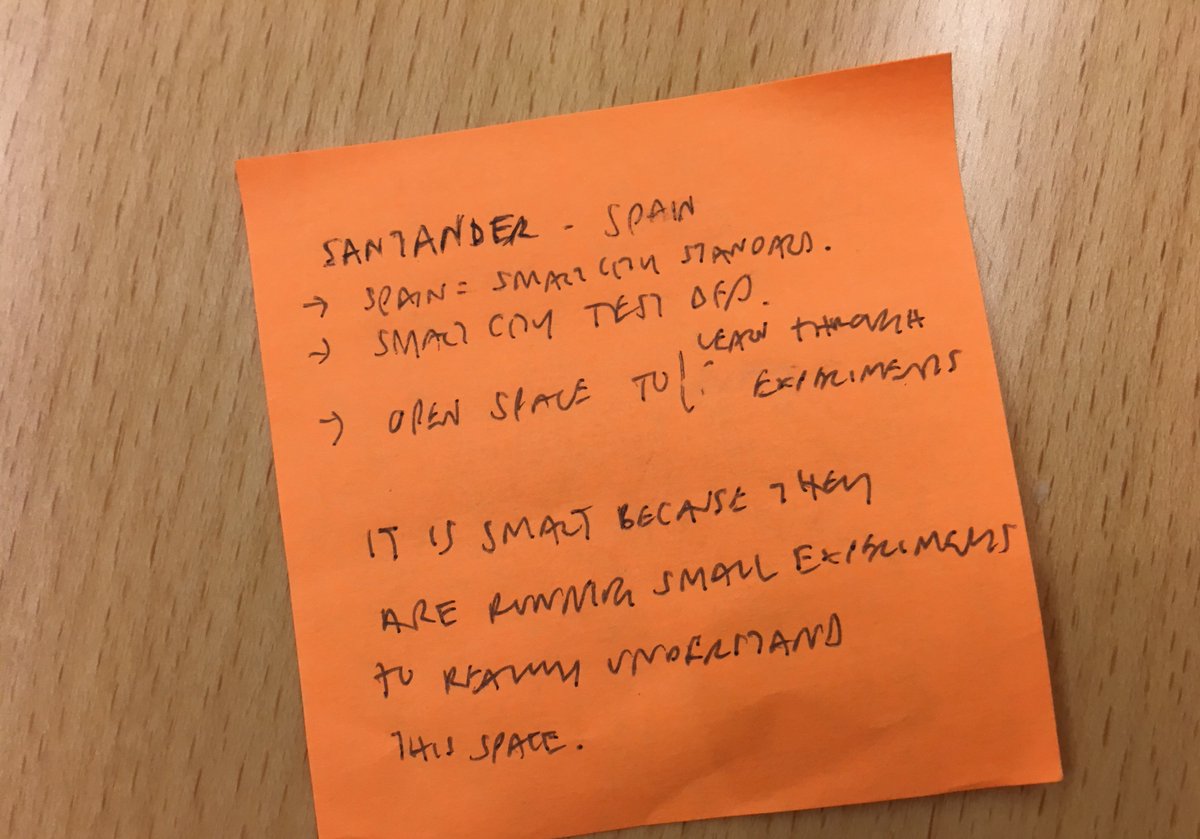 SANTANDER - SPAIN
→ SPAIN = SMART CITY STANDARD.
→ SMART CITY TEST BED.
→ OPEN SPACE TO LEARN THROUGH
EXPERIMENTS
IT IS SMART BECAUSE THEY
ARE RUNNING SMALL EXPERIMENTS
TO REALLY UNDERSTAND
THIS SPACE.